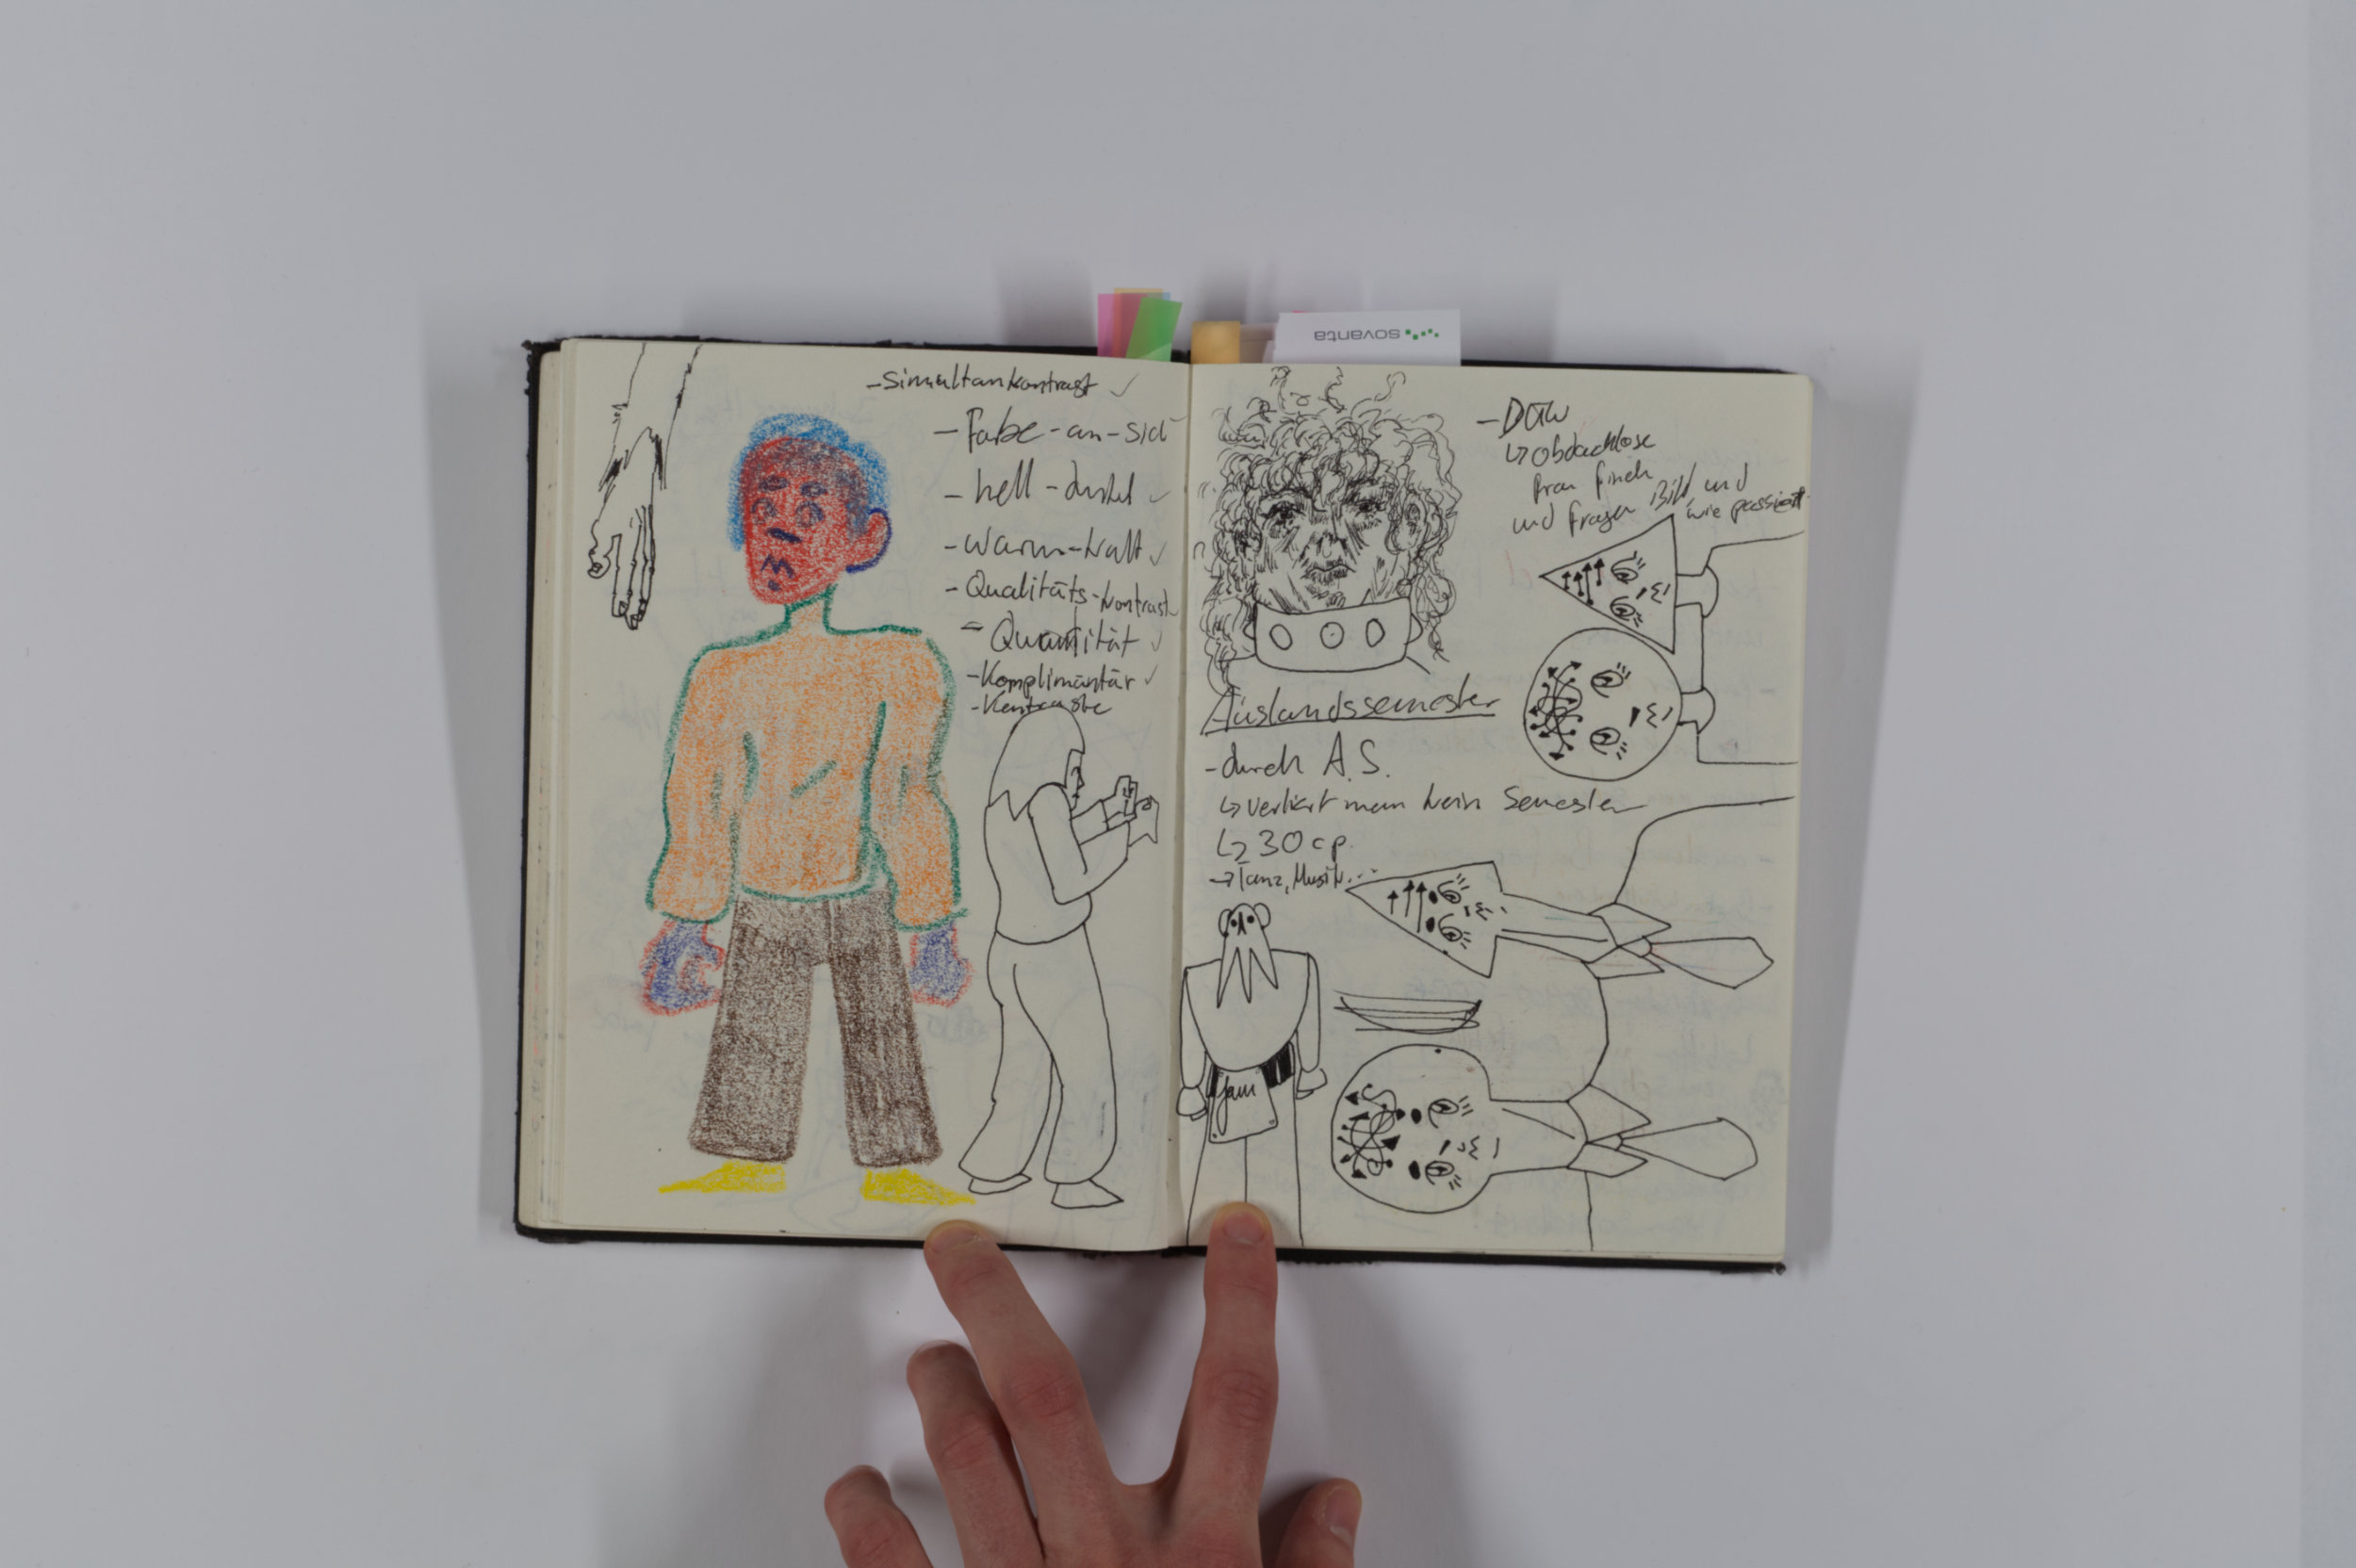 sovanta
-Simultankontrast ✓
- Farbe-an-sich
- hell-dunkel ✓
- warm-kalt ✓
- Qualitäts-kontrast
- Quantität ✓
- Komplimäntär ✓
- Kontraste
- DAW
↳ obdachlose
frau finden
und fragen Bild und
wie passiert
Auslandssemester
- durch A.S.
↳ verliert man kein Semester
↳ 30 cp.
→ Tanz, Musik...